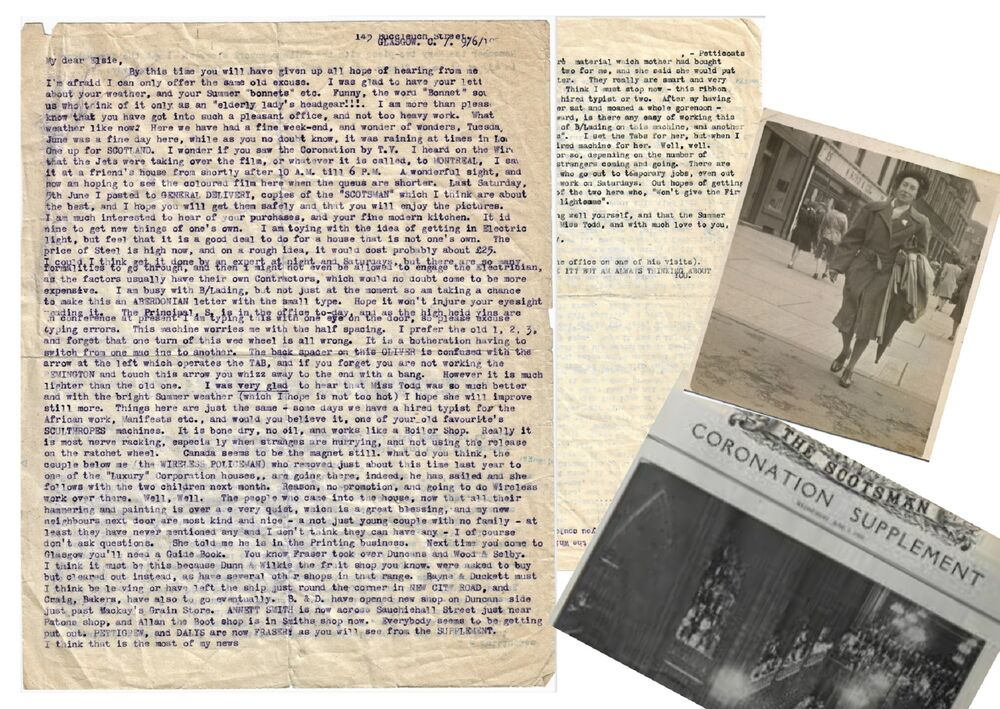 149 Buccleuch Street,
GLASGOW. C. 7. 9/6/
My dear Elsie,
By this time you will have given up all hope of hearing from me
I'm afraid I can only offer the same old excuse. I was glad to have your lett
about your weather, and your Summer "bonnets" etc. Funny, the word "Bonnet" sou
us who think of it only as an "elderly lady's headgear!!!. I am more than pleas
know that you have got into such a pleasant office, and not too heavy work. What
weather like now? Here we have had a fine week-end, and wonder of wonders, Tuesda,
June was a fine day here, while as you no doubt know, it was raining at times in Lo
One up for SCOTLAND. I wonder if you saw the Coronation by T.V. I heard on the Wir
that the Jets were taking over the film, or whatever it is called, to MONTREAL, I sa
it at a friend's house from shortly after 10 A.M. till 6 P.M. A wonderful sight, and
now am hoping to see the coloured film here when the queus are shorter. Last Saturday,
June I posted to GENERAL DELIVERY, copies of the "SCOTSMAN" which I think are about
the best, and I hope you will get them safely and that you will enjoy the pictures.
I am much interested to hear of your purchases, and your fine modern kitchen. It id
nine to get new things of one's own. I am toying with the idea of getting in Electric
light, but feel that it is a good deal to do for a house that is not one's own. The
price of Steel is high now, and on a rough idea, it would cost probably about £25.
I could I think get it done by an expert at night and Saturdays, but there are so many
formalities to go through, and then I might not even be allowed to engage the Electrician,
as the factors usually have their own Contractors, which would no doubt come to be more
expensive. I am busy with B/Lading, but not just at the moment so am taking a chance
to make this an ABERDONIAN letter with the small type. Hope it won't injure your eyesight
reading it. The Principal, S. is in the office to-day, and as the high heid yins are
in conference at present I am typing this with one eye on the door, so please excuse
typing errors. This machine worries me with the half spacing. I prefer the old 1, 2, 3,
and forget that one turn of this wee wheel is all wrong. It is a botheration having to
switch from one machine to another. The back spacer on this OLIVER is confused with the
arrow at the left which operates the TAB, and if you forget you are not working the
REMINGTON and touch this arrow you whizz away to the end with a bang. However it is much
lighter than the old one. I was very glad to hear that Miss Todd was so much better
and with the bright Summer weather (which I hope is not too hot) I hope she will improve
still more. Things here are just the same - some days we have a hired typist for the
African work, Manifests etc., and would you believe it, one of your old favourite's
SCULTHROPES machines. It is bone dry, no oil, and works like a Boiler Shop. Really it
is most nerve racking, especially when stranges are hurrying, and not using the release
on the ratchet wheel. Canada seems to be the magnet still. what do you think, the
couple below me (the WIRELESS POLICEMAN) who removed just about this time last year to
one of the "luxury" Corporation houses,, are going there, indeed, he has sailed and she
follows with the two children next month. Reason, no promotion, and going to do Wireless
work over there. Well, Well. The people who came into the house, now that all their
hammering and painting is over are very quiet, which is a great blessing, and my new
neighbours next door are most kind and nice - a not just young couple with no family - at
least they have never mentioned any and I don't think they can have any - I of course
don't ask questions. She told me he is in the Printing business. Next time you come to
Glasgow you'll need a Guide Book. You know Fraser took over Duncans and Wood & Selby.
I think it must be this because Dunn & Wilkie the fruit shop you know, were asked to buy
but cleared out instead, as have several other shops in that range. Bayne & Duckett must
I think be leaving or have left the ship just round the corner in NEW CITY ROAD, and
Craig, Bakers, have also to go eventually. B. & D. have opened new shop on Duncans side
just past Mackay's Grain Store. ANNETT SMITH is now across Sauchiehall Street just near
Patons shop, and Allan the Boot shop is in Smiths shop now. Everybody seems to be getting
put out. PETTIGREW, and DALYS are now FRASERS as you will see from the SUPPLEMENT.
I think that is the most of my news
, - Petticoats
material which mother had bought
two for me, and she said she would put
ter. They really are smart and very
Think I must stop now - this ribbon
hired typist or two. After my having
er sat and moaned a whole gorenoon -
ward, is there any easy of working this
of B/Lading on this machine, and another
. I set the Tabs for her, but when I
ired machine for her. Well, well.
or so, depending on the number of
strangers coming and going. There are
who go out to temporary jobs, even out
work on Saturdays. Out hopes of getting
of the two here who, "Won't give the Fir
lightsome".
ng well yourself, and that the Summer
Miss Todd, and with much love to you,
e office on one of his visits).
IT? BUT AM ALWAYS THINKING ABOUT
THE SCOTSMAN
CORONATION SUPPLEMENT